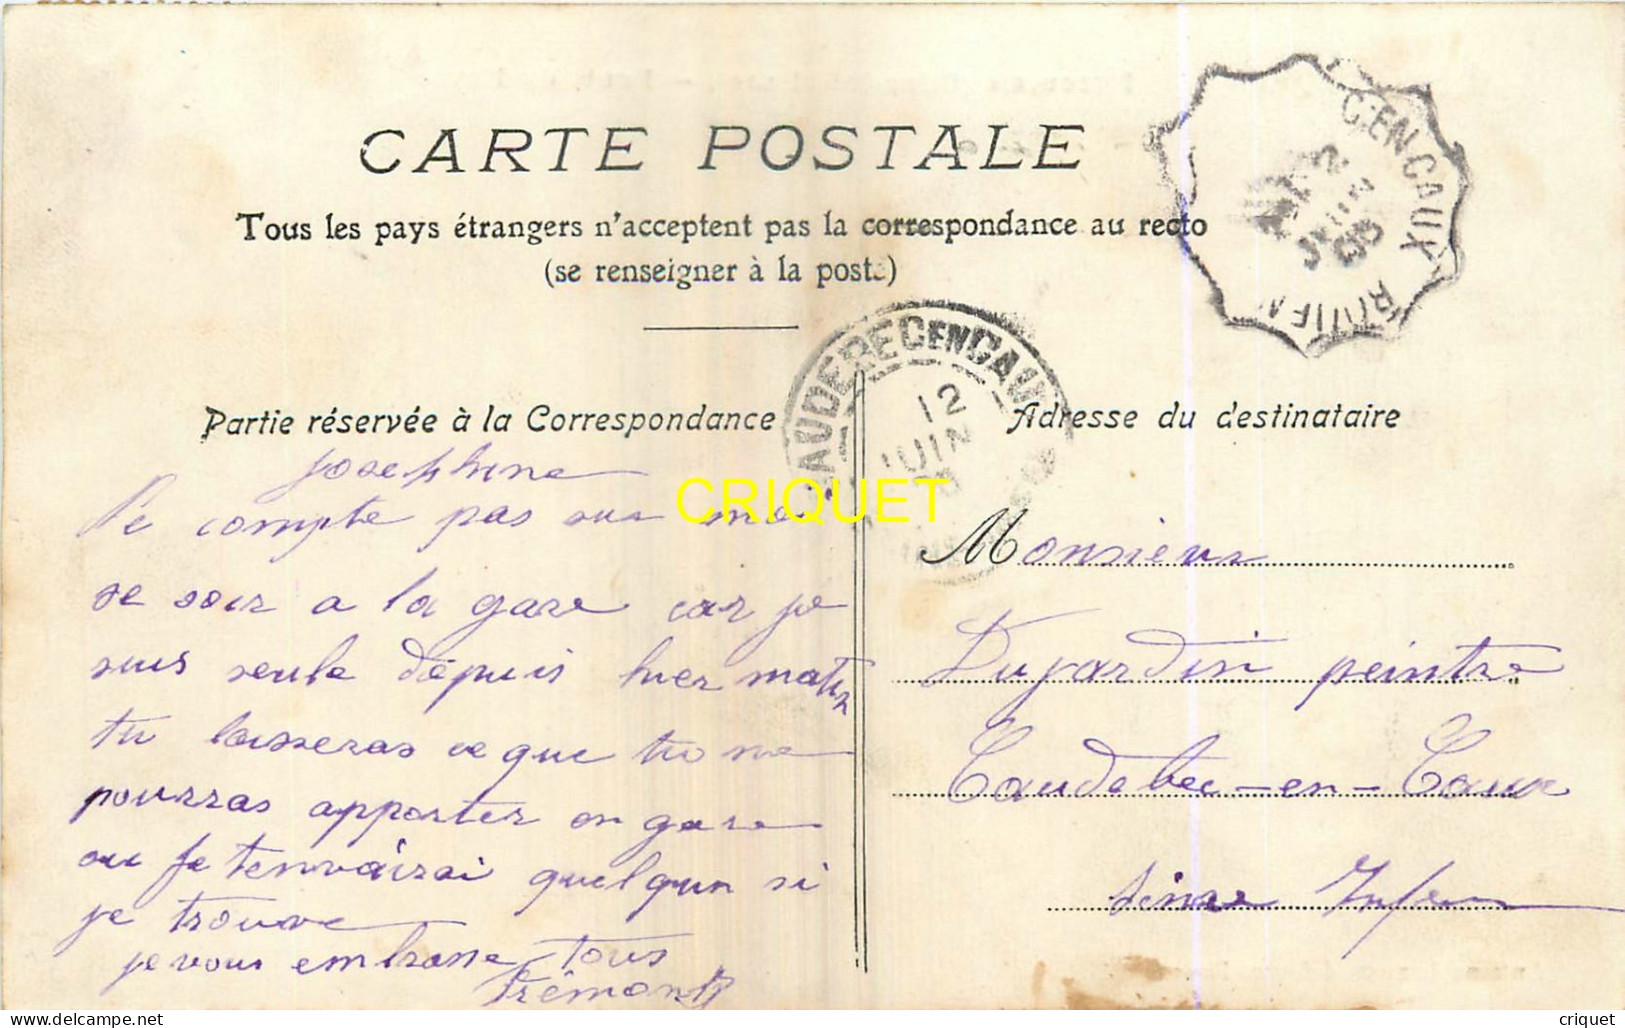 CARTE POSTALE
Tous les pays étrangers n'acceptent pas la correspondance au recto
(se renseigner à la poste)
C.EN.CAUX
CAUDEBEC EN CAUX
12
JUIN
Partie réservée à la Correspondance
Adresse du destinataire
Josephine
Ne compte pas sur moi
se soir a la gare car je
suis seule dépuis hier matin
tu laisseras ce que tu ne
pourras apporter en gare
ou je tenvairai quelqun si
je trouve
je vous embrasse tous
Monsieur
Dujardin peintre
Caudebec-en-Caux
Seine Infer
CRIQUET
delcampe.net
criquet